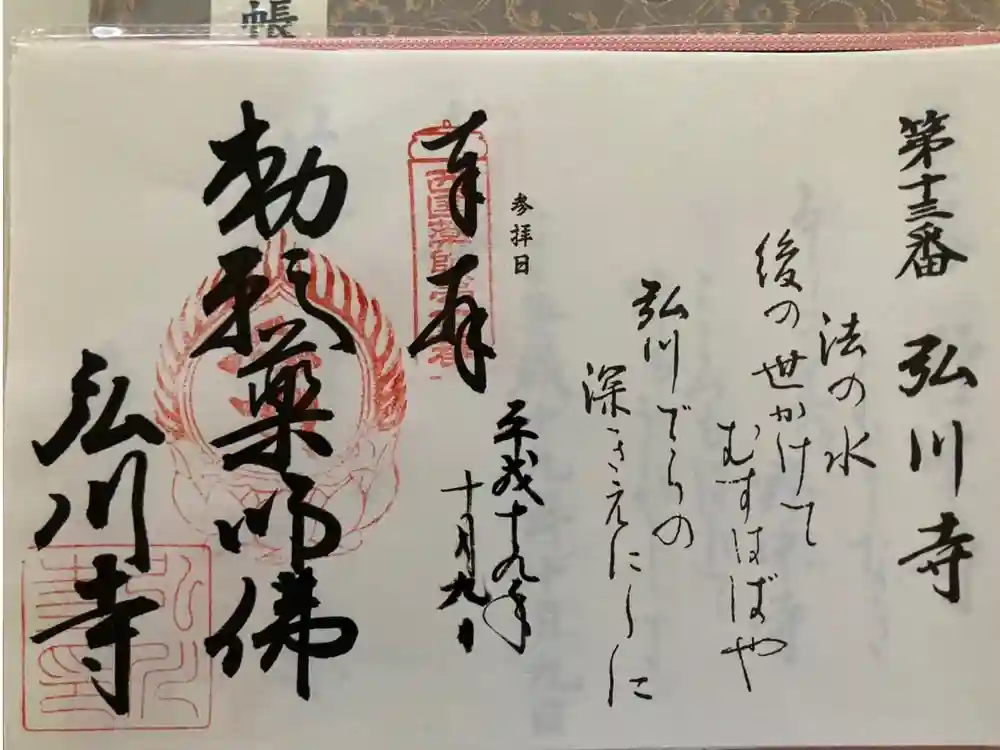 帳
第十三番 弘川寺
法の水
後の世かけて
むすはばや
弘川でらの
深きえにしに
参拝日
奉拝
西国薬師
平成十九年
十月九日
勅願薬師佛
弘川寺